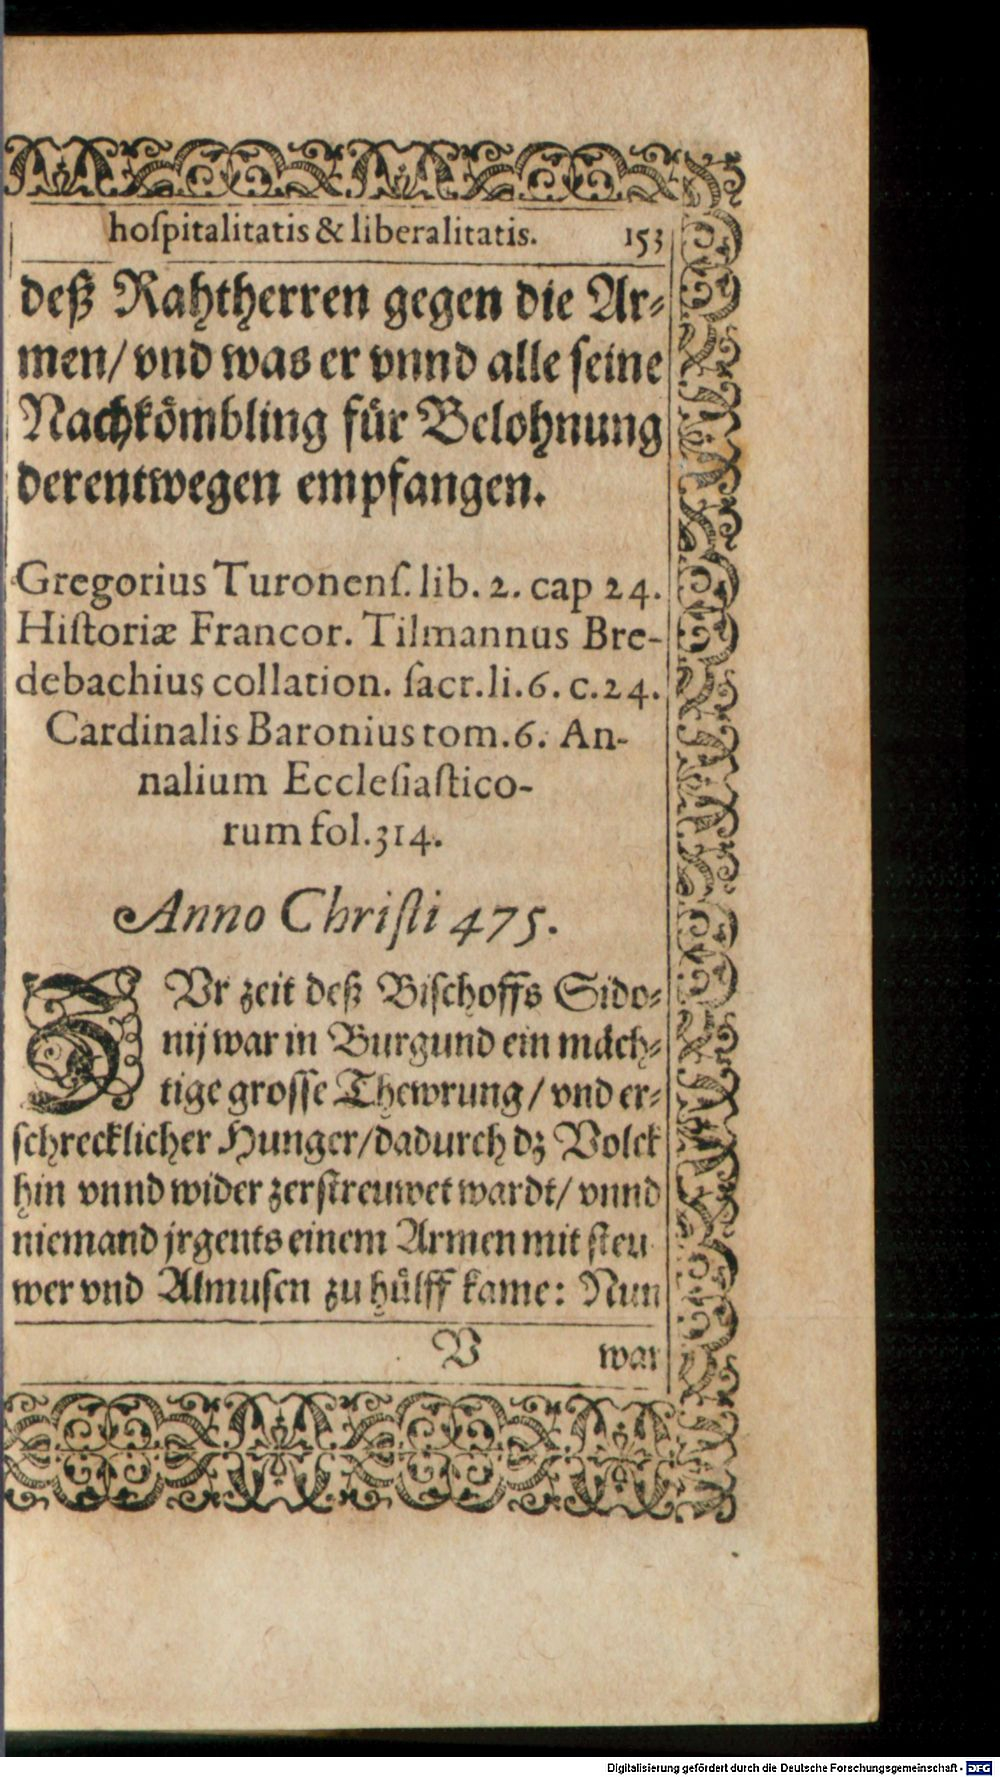 hoſpitalitatis & liberalitatis. 153
deß Rahtherren gegen die Ar⸗
men/ vnd was er vnnd alle ſeine
Nachkömbling für Belohnung
derentwegen empfangen.
Gregorius Turonenſ. lib. 2. cap 24.
Hiſtoriæ Francor. Tilmannus Bre-
debachius collation. ſacr. li. 6. c. 24.
Cardinalis Baronius tom. 6. An-
nalium Eccleſiaſtico-
rum fol. 314.
Anno Chriſti 475.
ZVr zeit deß Biſchoffs Sido⸗
nij war in Burgund ein mäch⸗
tige groſſe Thewrung/ vnd er⸗
ſchrecklicher Hunger/ dadurch dz Volck
hin vnnd wider zerſtreuwet wardt/ vnnd
niemand jrgents einem Armen mit ſteu
wer vnd Almuſen zu hülff kame: Nun
V war
Digitalisierung gefördert durch die Deutsche Forschungsgemeinschaft - DFG